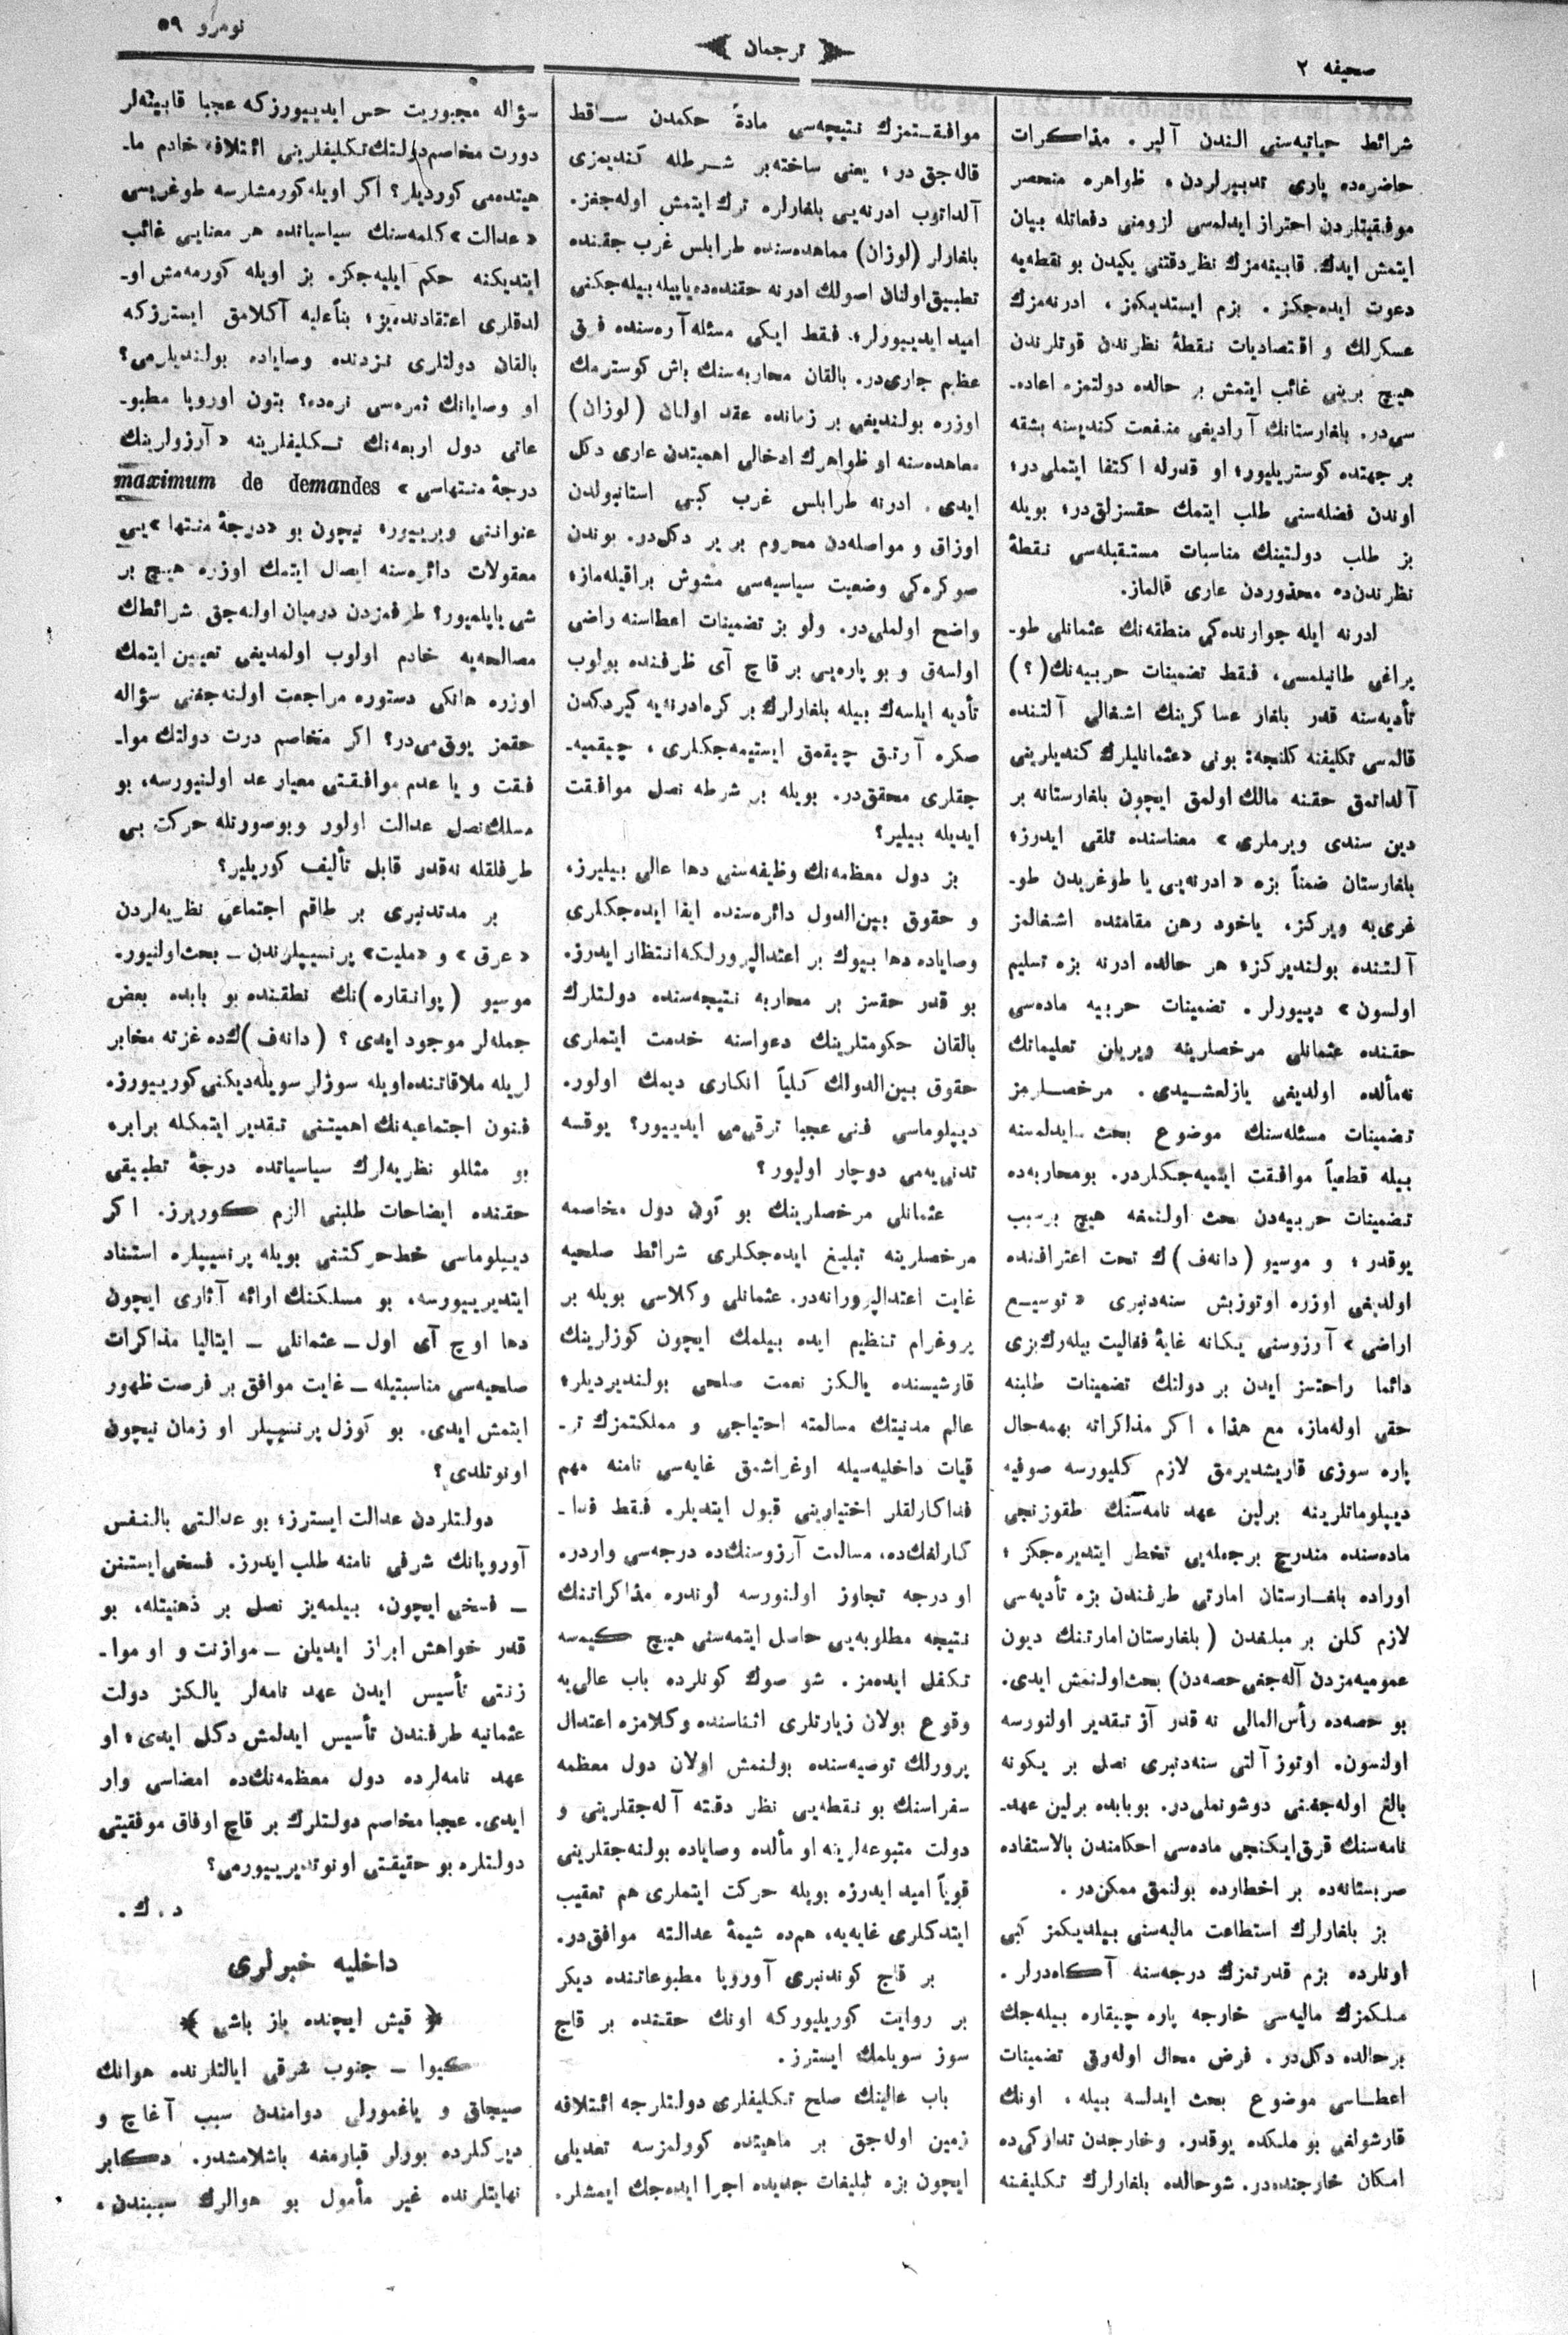 صحیفه ۲
ترجمان
نومرو ۵۹
شرائط حیاتیه‌سنی الندن آلیر. مذاکرات
حاضره‌ده یاری تدبیرلردن، ظواهره منحصر
موفقیتلردن احتراز ایدلمسی لزومنی دفعاتله بیان
ایتمش ایدك. قابینه‌مزك نظر دقتنی یكیدن بو نقطه‌یه
دعوت ایده‌جكز. بزم ایستدیكمز، ادرنه‌مزك
عسكرلك و اقتصادیات نقطهٔ نظرندن قوتلرندن
هیچ برینی غائب ایتمش بر حالده دولتمزه اعاده-
سی‌در. بلغارستانك آرادیغی منفعت كندیسنه بشقه
بر جهتده كوستریلیور؛ او قدرله اكتفا ایتملی‌در؛
اوندن فضله‌سنی طلب ایتمك حقسزلق‌در؛ بویله
بز طلب دولتینك مناسبات مستقبله‌سی نقطهٔ
نظرندن‌ده محذوردن عاری قالماز.
ادرنه ایله جوارنده‌كی منطقه‌نك عثمانلی طو-
پراغی طانیلمسی، فقط تضمینات حربیه‌نك(؟)
تأدیه‌سنه قدر بلغار عساكرینك اشغالی آلتنده
قالمه‌سی تكلیفنه كلنجه: بونی «عثمانلیلرك كندیلرینی
آلداتمق حقنه مالك اولمق ایچون بلغارستانه بر
دین سندی ویرملری» معناسنده تلقی ایدرز؛
بلغارستان ضمناً بزه «ادرنه‌یی یا طوغریدن طو-
غری‌یه ویركز، یاخود رهن مقامنده اشغالمز
آلتنده بولندیركز؛ هر حالده ادرنه بزه تسلیم
اولسون» دییورلر. تضمینات حربیه ماده‌سی
حقنده عثمانلی مرخصلرینه ویریلن تعلیماتك
نه‌مألده اولدیغی یازلمشیدی. مرخصلرمز
تضمینات مسئله‌سنك موضوع بحث ایدلمسنه
بیله قطعیاً موافقت ایتمیه‌جكلردر. بومحاربه‌ده
تضمینات حربیه‌دن بحث اولنمغه هیچ برسبب
یوقدر؛ و موسیو (دانه‌ف)ك تحت اعترافنده
اولدیغی اوزره اوتوزبش سنه‌دنبری «توسیع
اراضی» آرزوسنی یكانه غایهٔ فعالیت بیله‌رك بزی
دائما راحتسز ایدن بر دولتك تضمینات طلبنه
حقی اوله‌ماز، مع هذا، اكر مذاكراته بهمه‌حال
پاره سوزی قاریشدیرمق لازم كلیورسه صوفیه
دیپلوماتلرینه برلین عهد نامه‌سنك طقوزنجی
ماده‌سنده مندرج برجمله‌یی تخطر ایتدیره‌جكز؛
اوراده بلغارستان امارتی طرفندن بزه تأدیه‌سی
لازم كلن بر مبلغدن (بلغارستان‌امارتنك دیون
عمومیه‌مزدن آله‌جغی حصه‌دن) بحث‌اولنمش ایدی.
بو حصه‌ده رأس‌المالی نه قدر آز تقدیر اولنورسه
اولنسون. اوتوز آلتی سنه‌دنبری نصل بر یكونه
بالغ اوله‌جغنی دوشونملی‌در. بوبابده برلین عهد-
نامه‌سنك قرق‌ایكنجی ماده‌سی احكامندن بالاستفاده
صربستانه‌ده بر اخطارده بولنمق ممكن‌در.
بز بلغارلرك استطاعت مالیه‌سنی بیلدیكمز كبی
اونلرده بزم قدرتمزك درجه‌سنه آكاه‌درلر.
ملكمزك مالیه‌سی خارجه پاره چیقاره بیله‌جك
برحالده دكل‌در. فرض محال اوله‌رق تضمینات
اعطاسی موضوع بحث ایدلسه بیله، اونك
قارشولغی بو ملكده یوقدر. وخارجدن تداركی‌ده
امكان خارجنده‌در. شوحالده بلغارلرك تكلیفنه
موافقتمزك نتیجه‌سی مادةً حكمدن ساقط
قاله‌جق در؛ یعنی ساخته‌بر شرطله كندیمزی
آلداتوب ادرنه‌یی بلغارلره ترك ایتمش اوله‌جغز.
بلغارلر (لوزان) معاهده‌سنده طرابلس غرب حقنده
تطبیق‌اولنان اصولك ادرنه حقنده‌ده‌یاپیله بیله‌جكنی
امید ایدییورلر؛ فقط ایكی مسئله آره‌سنده فرق
عظیم جاری‌در. بالقان محاربه‌سنك باش كوسترمك
اوزره بولندیغی بر زمانده عقد اولنان (لوزان)
معاهده‌سنه او ظواهرك ادخالی اهمیتدن عاری دكل
ایدی. ادرنه طرابلس غرب كبی استانبولدن
اوزاق و مواصله‌دن محروم بر یر دكل‌در. بوندن
صوكره‌كی وضعیت سیاسیه‌سی مشوش براقیله‌ماز؛
واضح اولملی‌در. ولو بز تضمینات اعطاسنه راضی
اولسه‌ق و بو پاره‌یی بر قاچ آی ظرفنده بولوب
تأدیه ایلسه‌ك بیله بلغارلرك بر كره‌ادرنه‌یه كیردكدن
صكره آرتق چیقمق ایستیمه‌جكلری، چیقمیه-
جقلری محقق‌در. بویله بر شرطه نصل موافقت
ایدیله بیلیر؟
بز دول معظمه‌نك وظیفه‌سنی دها عالی بیلیرز،
و حقوق بین‌الدول دائره‌سنده ایفا ایده‌جكلری
وصایاده دها بیوك بر اعتدالپرورلكه‌انتظار ایدرز.
بو قدر حقسز بر محاربه نتیجه‌سنده دولتلرك
بالقان حكومتلرینك دعواسنه خدمت ایتملری
حقوق بین‌الدولك كلیاً انكاری دیمك اولور.
دیپلوماسی فنی عجبا ترقی‌می ایدییور؟ یوقسه
تدنی‌یه‌می دوچار اولیور؟
عثمانلی مرخصلرینك بو كون دول مخاصمه
مرخصلرینه تبلیغ ایده‌جكلری شرائط صلحیه
غایت اعتدالپرورانه‌در. عثمانلی وكلاسی بویله بر
پروغرام تنظیم ایده بیلمك ایچون كوزلرینك
قارشیسنده یالكز نعمت صلحی بولندیردیلر؛
عالم مدنیتك مسالمته احتیاجی و مملكتمزك تر-
قیات داخلیه‌سیله اوغراشمق غایه‌سی نامنه مهم
فداكارلقلر اختیارینی قبول ایتدیلر. فقط فدا-
كارلغك‌ده، مسالمت آرزوسنك‌ده درجه‌سی واردر.
او درجه تجاوز اولنورسه لوندره مذاكراتنك
نتیجه مطلوبه‌یی حاصل ایتمه‌سنی هیچ كیمسه
تكفل ایده‌مز. شو صوك كونلرده باب عالی‌یه
وقوع بولان زیارتلری اثناسنده وكلامزه اعتدال
پرورلك توصیه‌سنده بولنمش اولان دول معظمه
سفراسنك بو نقطه‌یی نظر دقته آله‌جقلرینی و
دولت متبوعه‌لرینه او مألده وصایاده بولنه‌جقلرینی
قویاً امید ایدرز. بویله حركت ایتملری هم تعقیب
ایتدكلری غایه‌یه، هم‌ده شیمهٔ عدالته موافق‌در.
بر قاچ كوندنبری آوروپا مطبوعاتنده دیكر
بر روایت كوریلیوركه اونك حقنده بر قاچ
سوز سویلمك ایسترز.
باب عالینك صلح تكلیفلری دولتلرجه ائتلافه
زمین اوله‌جق بر ماهیتده كورلمزسه تعدیلی
ایچون بزه تبلیغات جدیده اجرا ایده‌جك ایمشلر.
سؤاله مجبوریت حس ایدییورزكه عجبا قابینه‌لر
دورت مخاصم دولتك تكلیفلرینی ائتلافه خادم ما-
هیتده‌می كوردیلر؟ اكر اویله كورمشلرسه طوغریسی
«عدالت» كلمه‌سنك سیاسیاتده هر معنایی غائب
ایتدیكنه حكم ایلیه‌جكز. بز اویله كورمه‌مش او-
لدقلری اعتقادنده‌یز؛ بناءً‌علیه آكلامق ایسترزكه
بالقان دولتلری نزدنده وصایاده بولندیلرمی؟
او وصایانك ثمره‌سی نره‌ده؟ بتون اوروپا مطبو-
عاتی دول اربعه‌نك تكلیفلرینه «آرزولرینك
درجهٔ منتهاسی» maximum de demandes
عنواننی ویرییور؛ نیچون بو «درجهٔ منتها»یی
معقولات دائره‌سنه ایصال ایتمك اوزره هیچ بر
شی یاپلمیور؟ طرفمزدن درمیان اولنه‌جق شرائطك
مصالحه‌یه خادم اولوب اولمدیغی تعیین ایتمك
اوزره هانكی دستوره مراجعت اولنه‌جغنی سؤاله
حقمز یوق‌می‌در؟ اكر متخاصم درت دولتك موا-
فقت و یا عدم موافقتی معیار عد اولنیورسه، بو
مسلك‌نصل عدالت اولور وبوصورتله حركت بی
طرفلقله نه‌قدر قابل تألیف كوریلیر؟
بر مدتدنبری بر طاقم اجتماعی نظریه‌لردن
«عرق» و «ملیت» پرنسیپلرندن ـ بحث‌اولنیور.
موسیو (پوانقاره)نك نطقنده بو بابده بعض
جمله‌لر موجود ایدی؟ (دانه‌ف)ك‌ده غزته مخابر
لریله ملاقاتنده‌اویله سوزلر سویله‌دیكنی كوریيورز.
فنون اجتماعیه‌نك اهمیتنی تقدیر ایتمكله برابره
بو مثللو نظریه‌لرك سیاسیاتده درجهٔ تطبیقی
حقنده ایضاحات طلبنی الزم كوریرز. اكر
دیپلوماسی خط‌حركتنی بویله پرنسیپلره استناد
ایتدیرییورسه، بو مسلكنك ارائه آثاری ایچون
دها اوچ آی اول ـ عثمانلی ـ ایتالیا مذاكرات
صلحیه‌سی مناسبتیله ـ غایت موافق بر فرصت ظهور
ایتمش ایدی. بو كوزل پرنسیپلر او زمان نیچون
اونوتلدی؟
دولتلردن عدالت ایسترز؛ بو عدالتی بالنفس
آوروپانك شرفی نامنه طلب ایدرز. فسخی‌ایستنن
ـ فسخی ایچون، بیلمه‌یز نصل بر ذهنیتله، بو
قدر خواهش ابراز ایدیلن ـ موازنت و او موا-
زنتی تأسیس ایدن عهد نامه‌لر یالكز دولت
عثمانیه طرفندن تأسیس ایدلمش دكل ایدی؛ او
عهد نامه‌لرده دول معظمه‌نك‌ده امضاسی وار
ایدی. عجبا مخاصم دولتلرك بر قاچ اوفاق موفقیتی
دولتلره بو حقیقتی اونوتدیرییورمی؟
د. ك.
داخلیه خبرلری
﴿ قیش ایچنده یاز باشی ﴾
كیوا ـ جنوب غرقی ایالتلرنده هوانك
صیجاق و یاغمورلی دوامندن سبب آغاچ و
دیركلرده بورلر قبارمغه باشلامشدر. دكابر
نهایتلرنده غیر مأمول بو هوالرك سببندن،